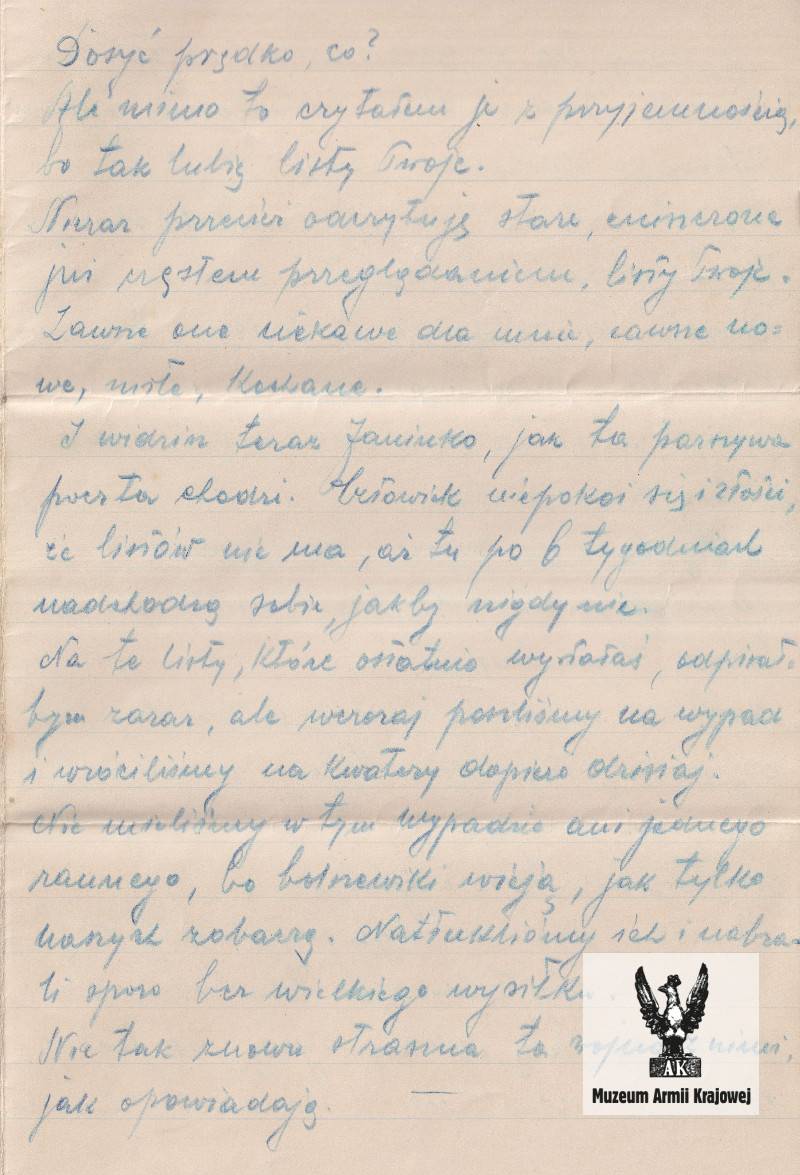 Dosyć prędko, co?
Ale mimo to czytałem je z przyjemnością,
bo tak lubię listy Twoje.
Nieraz przecież odczytuję stare, zniszczone
już częstem przeglądaniem, listy Twoje.
Zawsze one ciekawe dla mnie, zawsze no=
we, miłe, kochane.
I widzisz teraz Janinko, jak ta parszywa
poczta chodzi. Człowiek niepokoi się i złości,
że listów nie ma, aż tu po 6 tygodniach
nadchodzą sobie, jakby nigdy nic.
Na te listy, które ostatnio wysłałaś, odpisał-
bym zaraz, ale wczoraj poszliśmy na wypad
i wróciliśmy na kwatery dopiero dzisiaj.
Nie mieliśmy w tym wypadzie ani jednego
rannego, bo bolszewiki wieją, jak tylko
naszych zobaczą. Natłukliśmy ich i nabra-
li sporo bez wielkiego wysiłku.
Nie tak znowu straszna ta wojna z nimi,
jak opowiadają.
AK
Muzeum Armii Krajowej